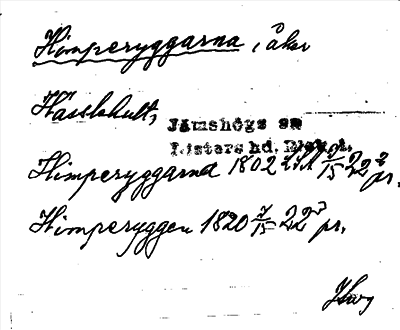 Himperyggarna, åker
Hasslehult,
Jämshögs sn
Listers hd. Blek. l.
Himperyggarna 1802 2/15 22 2 pr.
Himperyggen 1820 7/15 22 3 pr.